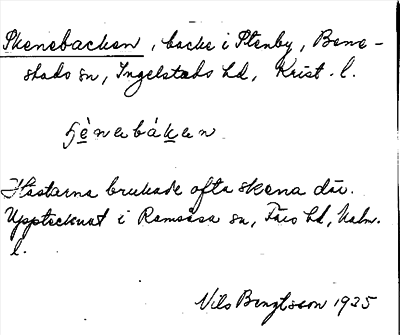 Skenebacken, backe i Stenby, Bene-
stads sn, Ingelstads hd, Krist. l.
ɧènabákan
Hästarna brukade ofta skena där.
Upptecknat i Ramsåsa sn, Färs hd, Malm.
l.
Nils Bengtsson 1925